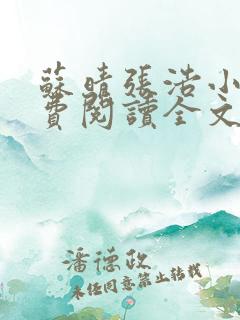 蘇晴張浩小
費閱讀全文
潘德政
未经同意禁止转载